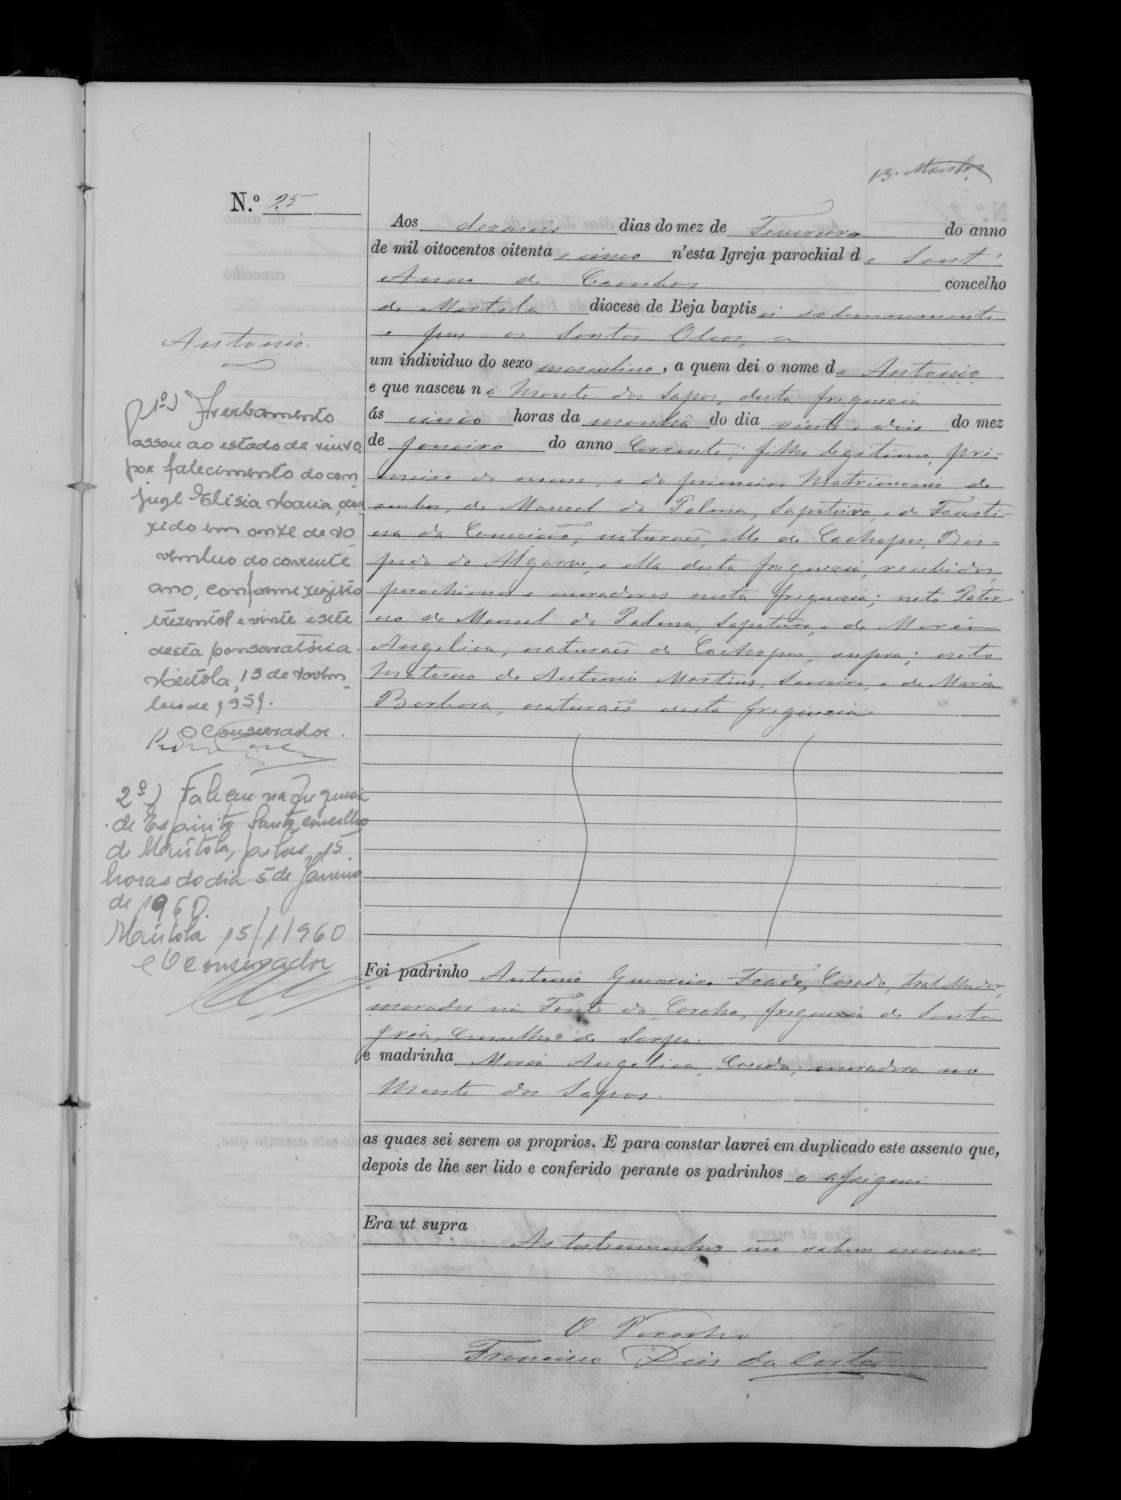 N.º 25
Antonio.
1º) Averbamento
Passou ao estado de viuvo
por falecimento do con-
juge Elisia Maria, ocor-
rido em onze de no
vembro do corrente
ano, conforme registo
trezentos e vinte e sete
desta conservatória.
Mértola, 13 de Novem-
bro de 1959.
O Conservador.
2º) Faleceu na freguesia
de Espirito Santo concelho
de Mértola, pelas 15
horas do dia 5 de Janeiro
de 1960.
Mértola 15/1/960
O Conservador
Aos dezaseis dias do mez de Fevereiro do anno
de mil oitocentos oitenta e cinco n'esta Igreja parochial de Sant'
Anna de Cambas concelho
de Mertola diocese de Beja baptisei solemnemente
e puz os Santos Oleos a
um individuo do sexo masculino, a quem dei o nome de Antonio
e que nasceu no Monte dos Sapos, desta freguezia
ás cinco horas da manhã do dia vinte e dois do mez
de Janeiro do anno Corrente; filho legitimo, pri-
meiro do nome, e do primeiro Matrimonio de
ambos, de Manoel da Palma, Sapateiro, e de Fausti-
na da Conceição, naturaes, elle de Cachopo, Bis-
pado do Algarve, e ella desta freguezia, recebidos,
parochianos e moradores nesta freguezia; neto Pater-
no de Manoel da Palma, Sapateiro, e de Maria
Angelica, naturaes de Cachopo, supra; neto
Materno de Antonio Martins, e de Maria
Barbora, naturaes desta freguezia.
Foi padrinho Antonio Guerreiro Casado, trabalhador,
morador na Fonte do Corcho, freguezia de Santa
Iria, Concelho de Serpa.
e madrinha Maria Angelica, Casada, moradora no
Monte dos Sapos.
as quaes sei serem os proprios. E para constar lavrei em duplicado este assento que,
depois de lhe ser lido e conferido perante os padrinhos o assignei
Era ut supra
As testemunhas não sabem escrever.
O Parocho
Francisco Dias da Costa